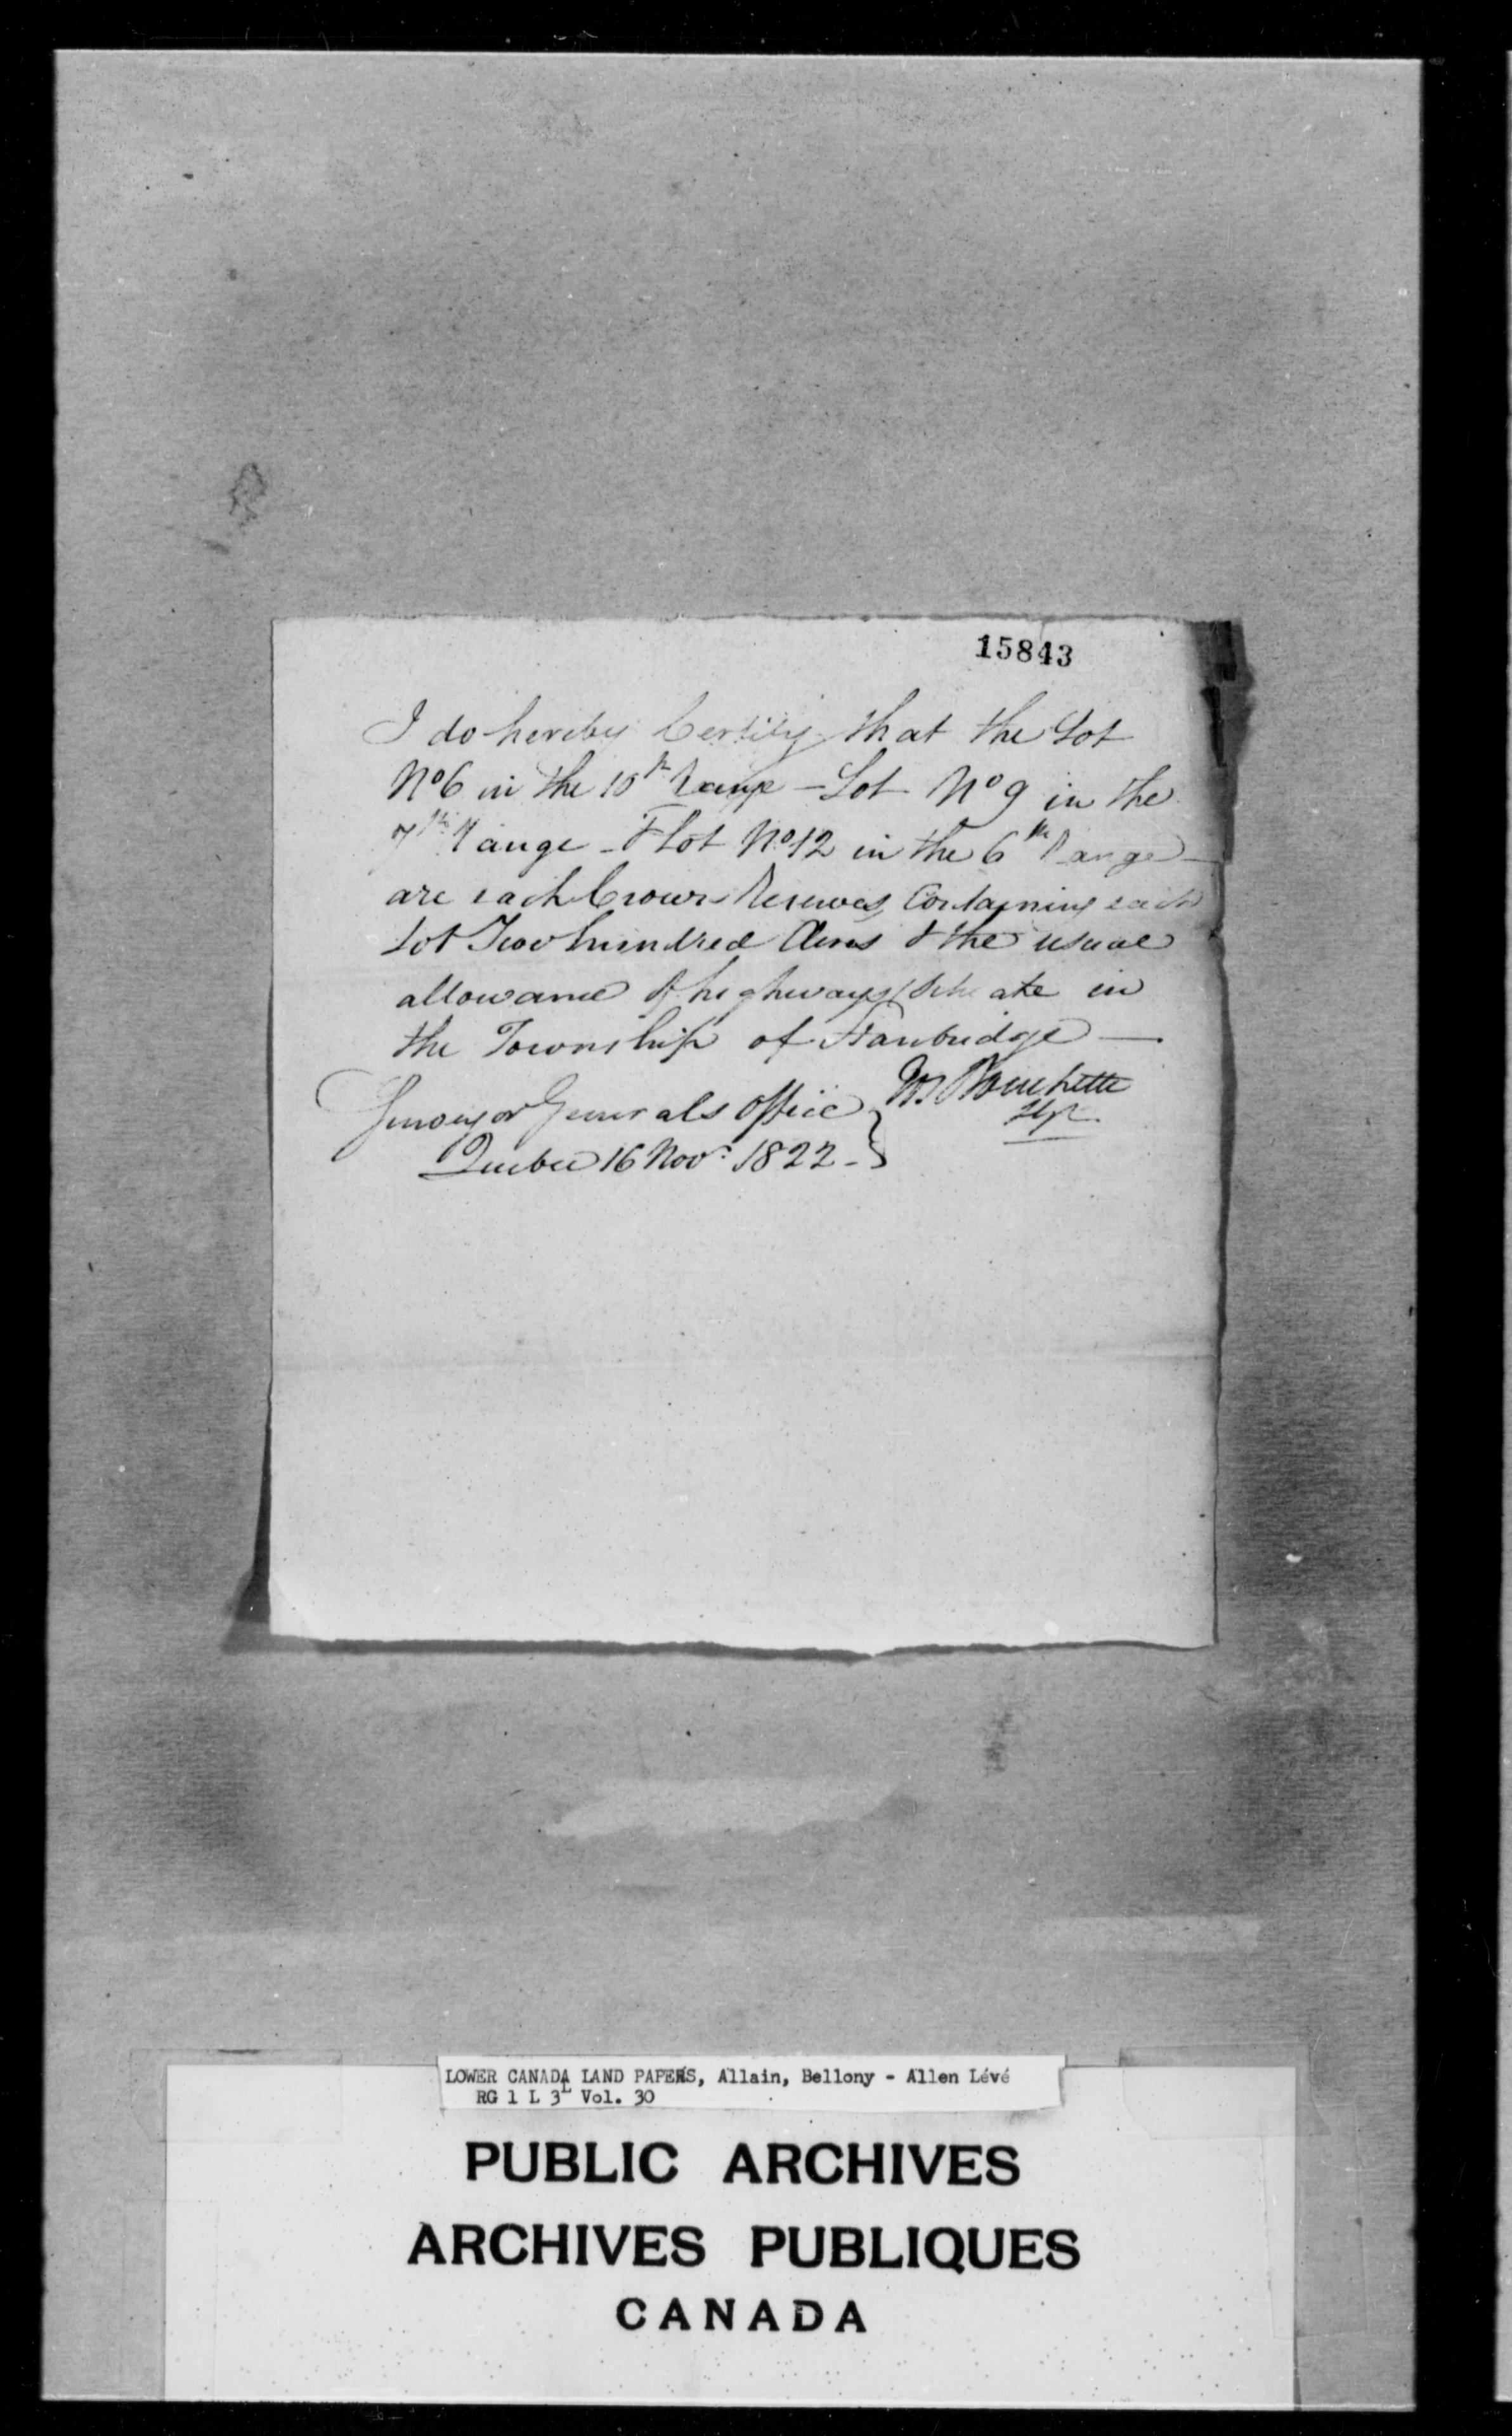 15843
I do hereby Certify that the Lot
No 6 in the 10th Range - Lot No 9 in the
7th Range - & Lot No 12 in the 6th Range -
are each Crown Reserves, Containing each
Lot Two hundred Acres & the usual
allowance of highways, Situate in
the Township of Stanbridge —
Jos Bouchette
Surveyor Generals Office
Quebec 16 Novr 1822 -
LOWER CANADA LAND PAPERS, Allain, Bellony - Allen Lévé
RG 1 L 3L Vol. 30
PUBLIC ARCHIVES
ARCHIVES PUBLIQUES
CANADA